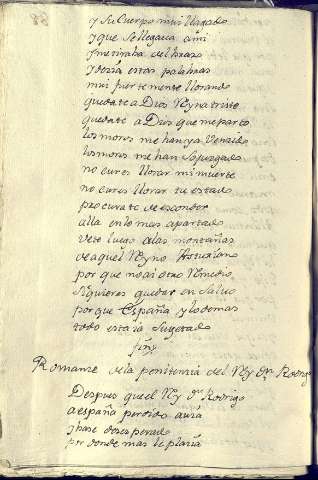 y Su Cuerpo mui llagado
y que Se llegava a mi
y me tirava del brazo
y dezia estas palabras
mui fuertemente llorando
quedate a Dios Reyna triste
quedate a Dios que me parto
los moros me han ya Venzido
los moros me han Sojusgado
no cures llorar mi muerte
no cures llorar tu estado
procurate de esconder
alla en lo mas apartado
vete luego a las montañas
de aquel Reyno Asturiano
por que no ai otro Remedio
Siquieres quedar en Salvo
porque España y lo demas
todo esta ia Sugetado
fin
Romanze de la penitenzia del Rey Dn. Rodrigo
Despues que el Rey Dn. Rodrigo
a españa perdido avia
ybase desesperado
por donde mas le plazia